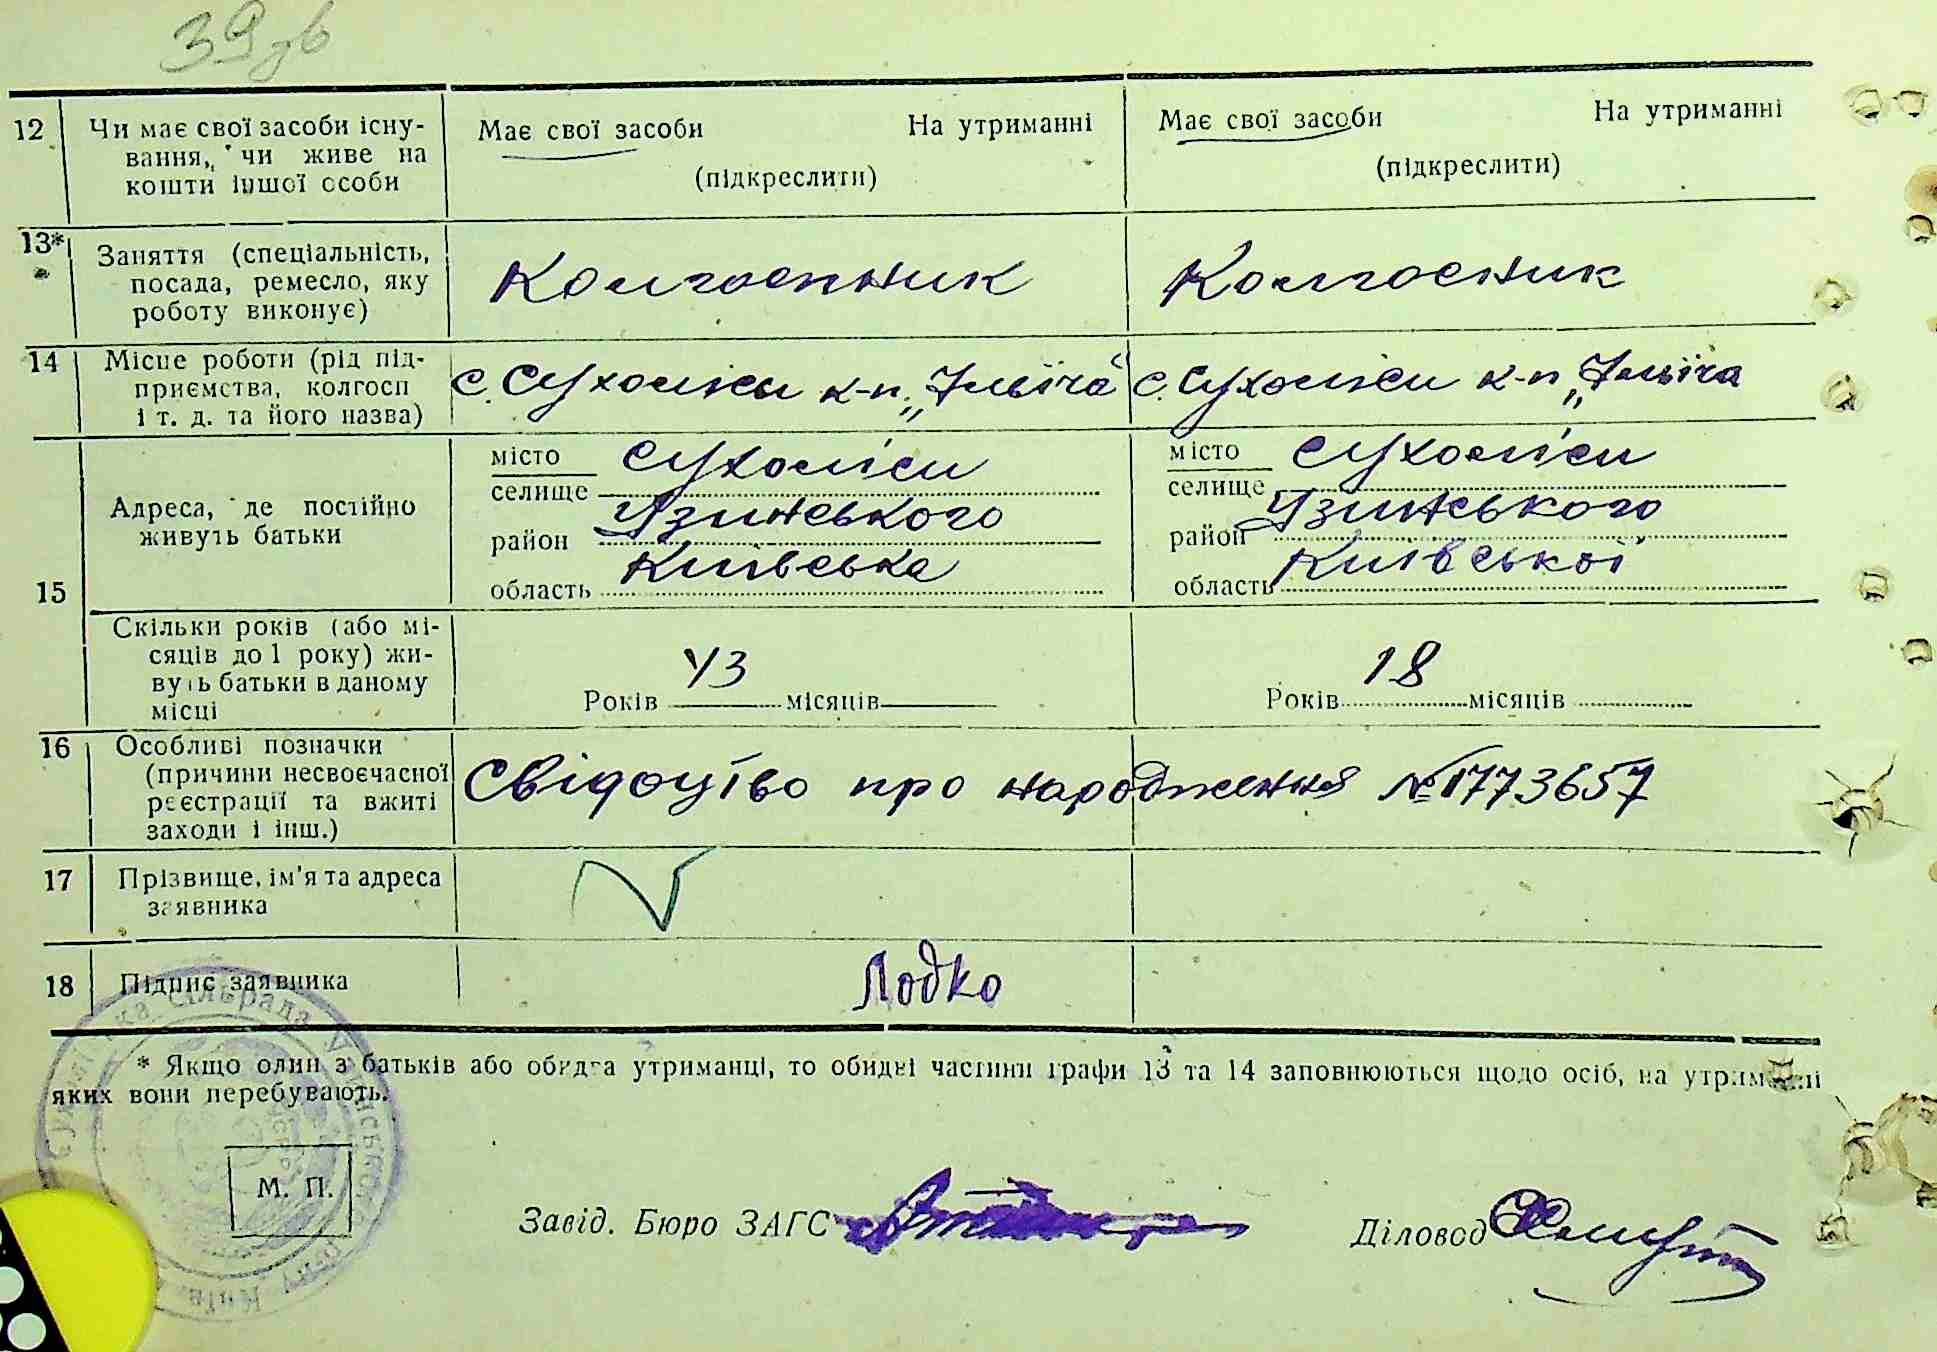 39 зв
12 Чи має свої засоби існу-
вання, чи живе на
кошти іншої особи
Має свої засоби На утриманні
(підкреслити)
Має свої засоби На утриманні
(підкреслити)
13* Заняття (спеціальність,
посада, ремесло, яку
роботу виконує)
Колгоспник
Колгосник
14 Місце роботи (рід під-
приємства, колгосп
і т. д. та його назва)
с. Сухоліси к-п. „Ілліча“
с. Сухоліси к-п „Ілліча
15 Адреса, де постійно
живуть батьки
місто
селище Сухоліси
район Узинського
область Київська
місто
селище Сухоліси
район Узинського
область Київської
Скільки років (або мі-
сяців до 1 року) жи-
вуть батьки в даному
місці
Років 43 місяців
Років 18 місяців
16 Особливі позначки
(причини несвоєчасної
реєстрації та вжиті
заходи і інш.)
Свідоцтво про народження № 1773657
17 Прізвище, ім'я та адреса
заявника
18 Підпис заявника
Лодко
* Якщо один з батьків або обидва утриманці, то обидві частини графи 13 та 14 заповнюються щодо осіб, на утриманні
яких вони перебувають.
М. П.
Завід. Бюро ЗАГС
Діловод